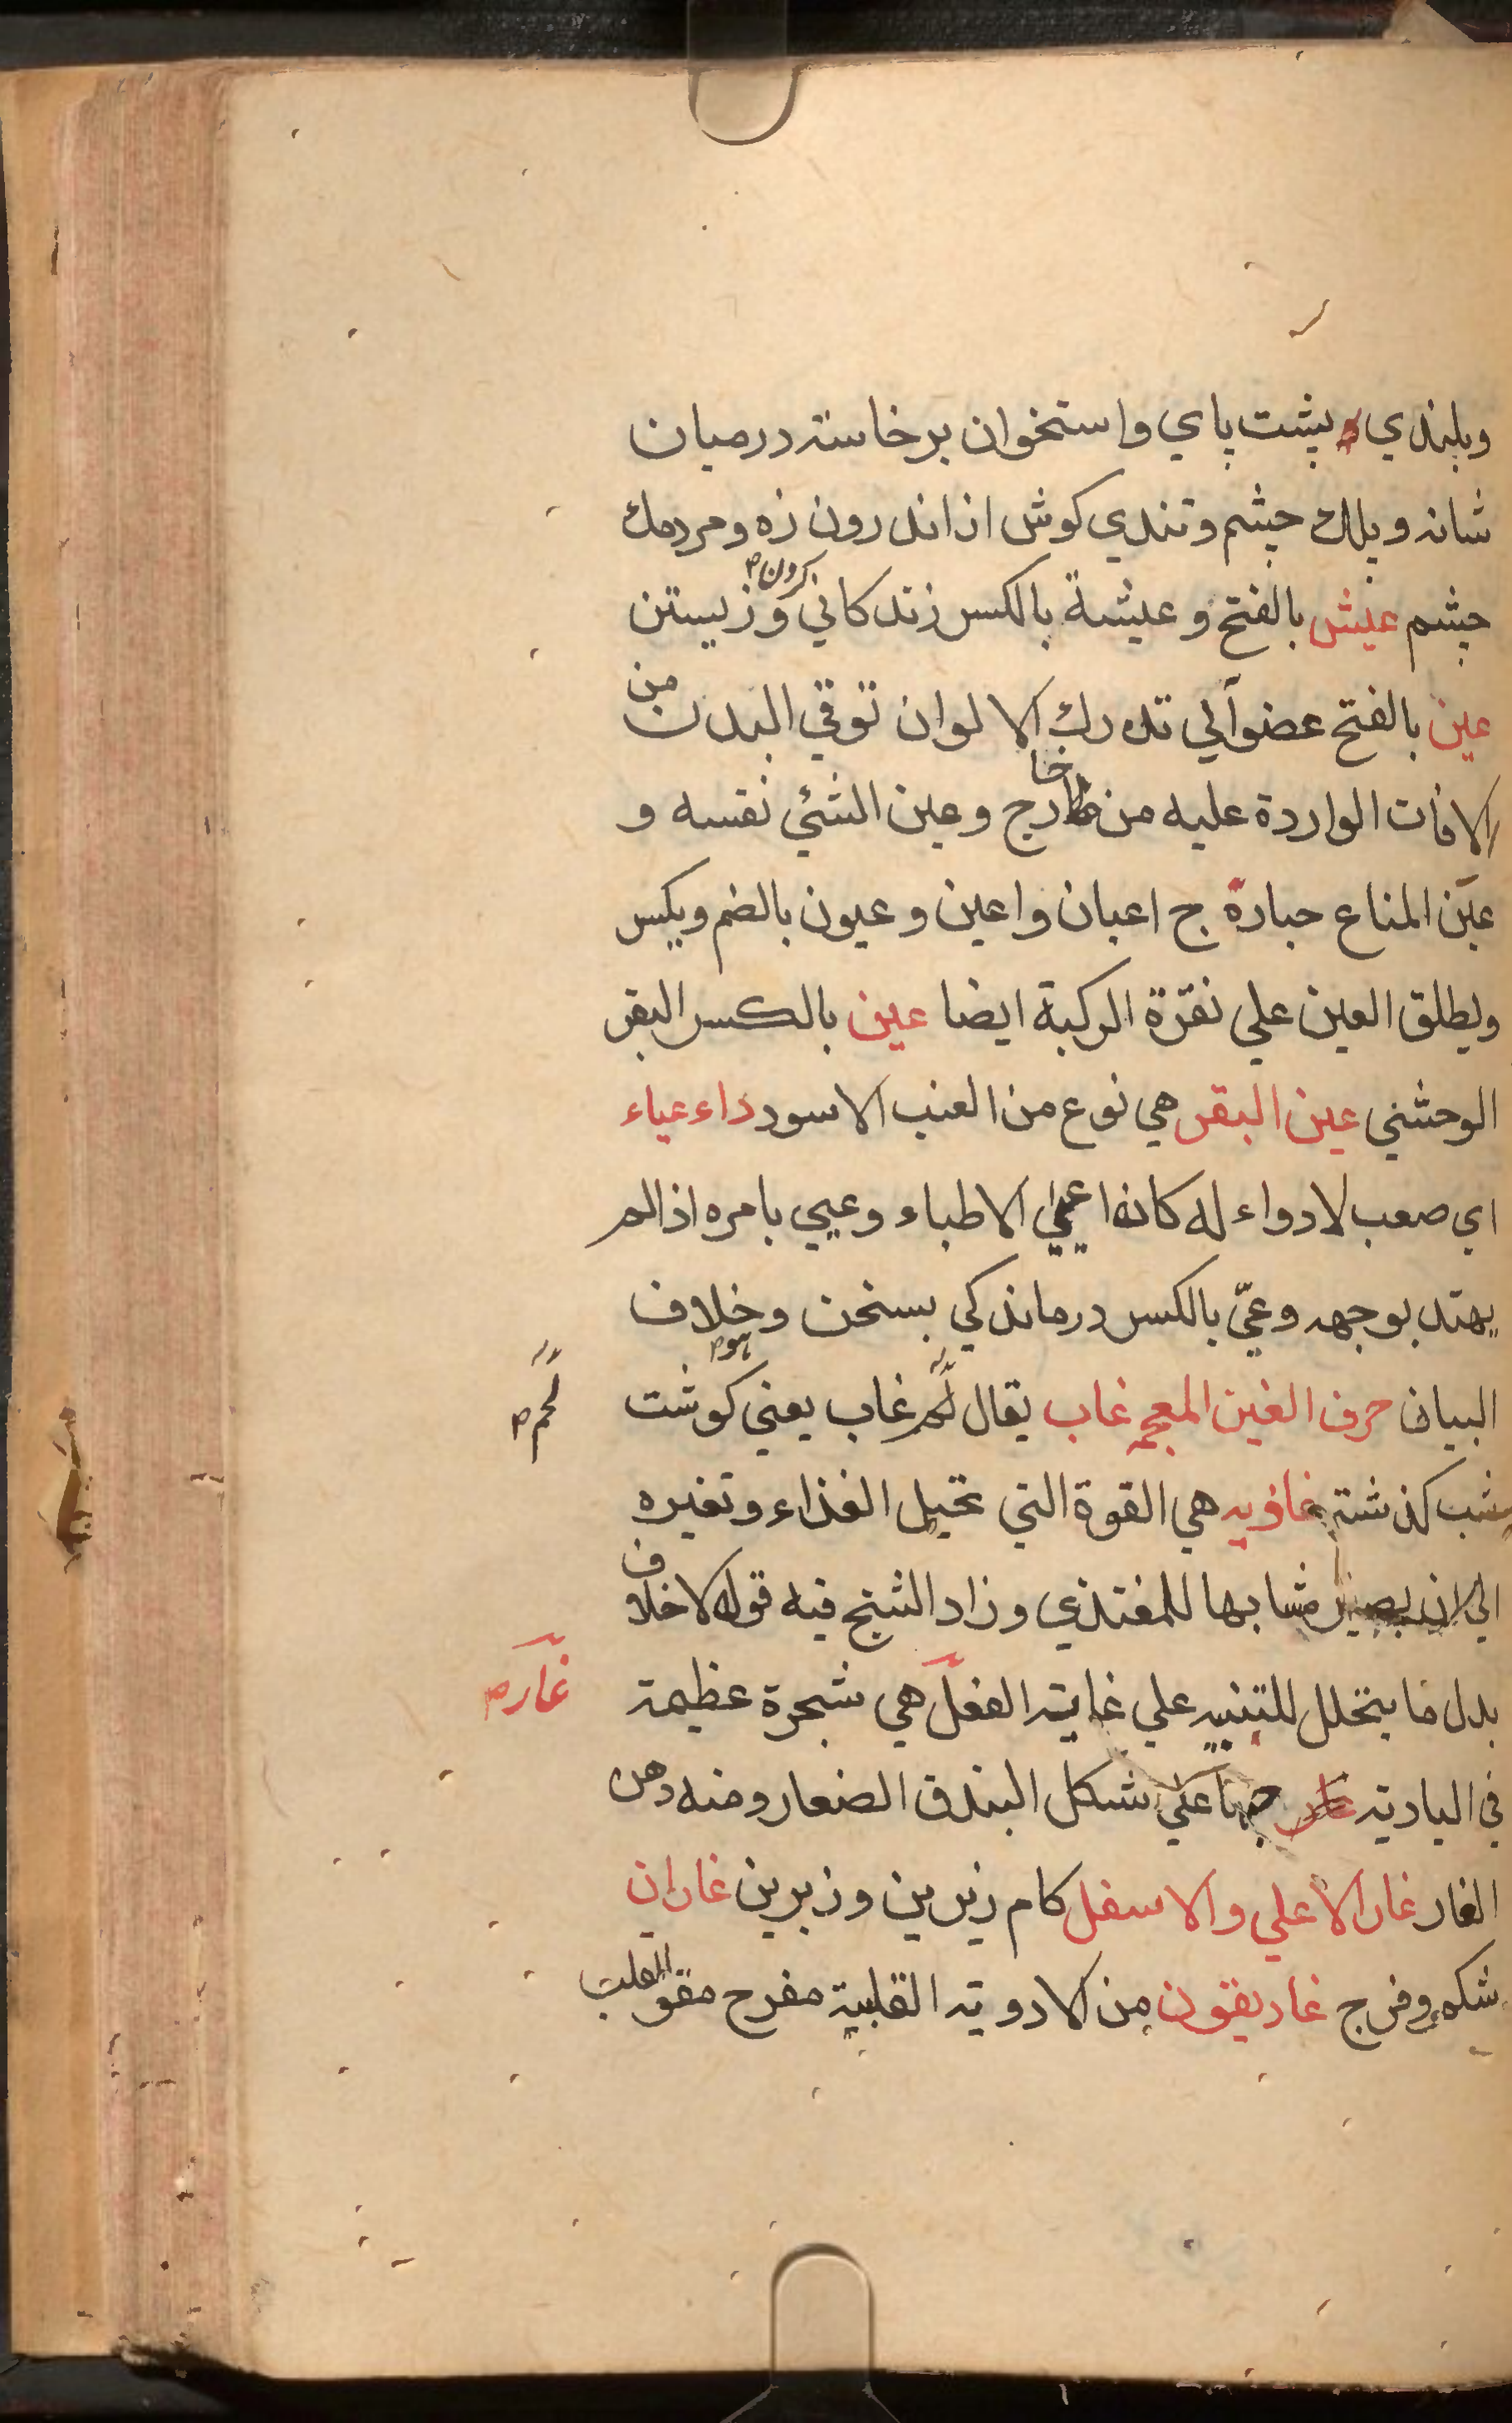 وبلندي پشت پاي واستخوان برخاسته درميان
شانه وپلك چشم وتندي كوش از اندرون زه ومردمك
چشم عيش بالفتح وعيشة بالكسر زندكاني كردن وزيستن
عين بالفتح عضو آلي تدرك الالوان توقي البدن من
الافات الواردة عليه من خارج وعين الشئي نفسه و
عين المتاع خياره ج اعيان واعين وعيون بالضم ويكسر
ويطلق العين علي نقرة الركبة ايضا عين بالكسر البقر
الوحشي عين البقر هي نوع من العنب الاسود داء عياء
اي صعب لا دواء له كانه اعيي الاطباء وعيي بامره اذا لم
يهتد بوجهه وعيّ بالكسر درماندكي بسخن وخلاف
البيان حرف الغين المعجمه غاب يقال لحم غاب يعني كوشت
لحم
شب كذشته غاذيه هي القوة التي تحيل الغذاء وتغيره
الي ان يصير مشابها للمغتذي وزاد الشيخ فيه قوله لاخلاف
بدل ما يتحلل للتنبيه علي غايته الفعل هي شجرة عظيمة
غار
في البادية حبها علي شكل البندق الصغار ومنه دهن
الغار غار الاعلي والاسفل كام زيرين وزبرين غاران
شكم وفرج غاريقون من الادوية القلبية مفرح مقو للقلب